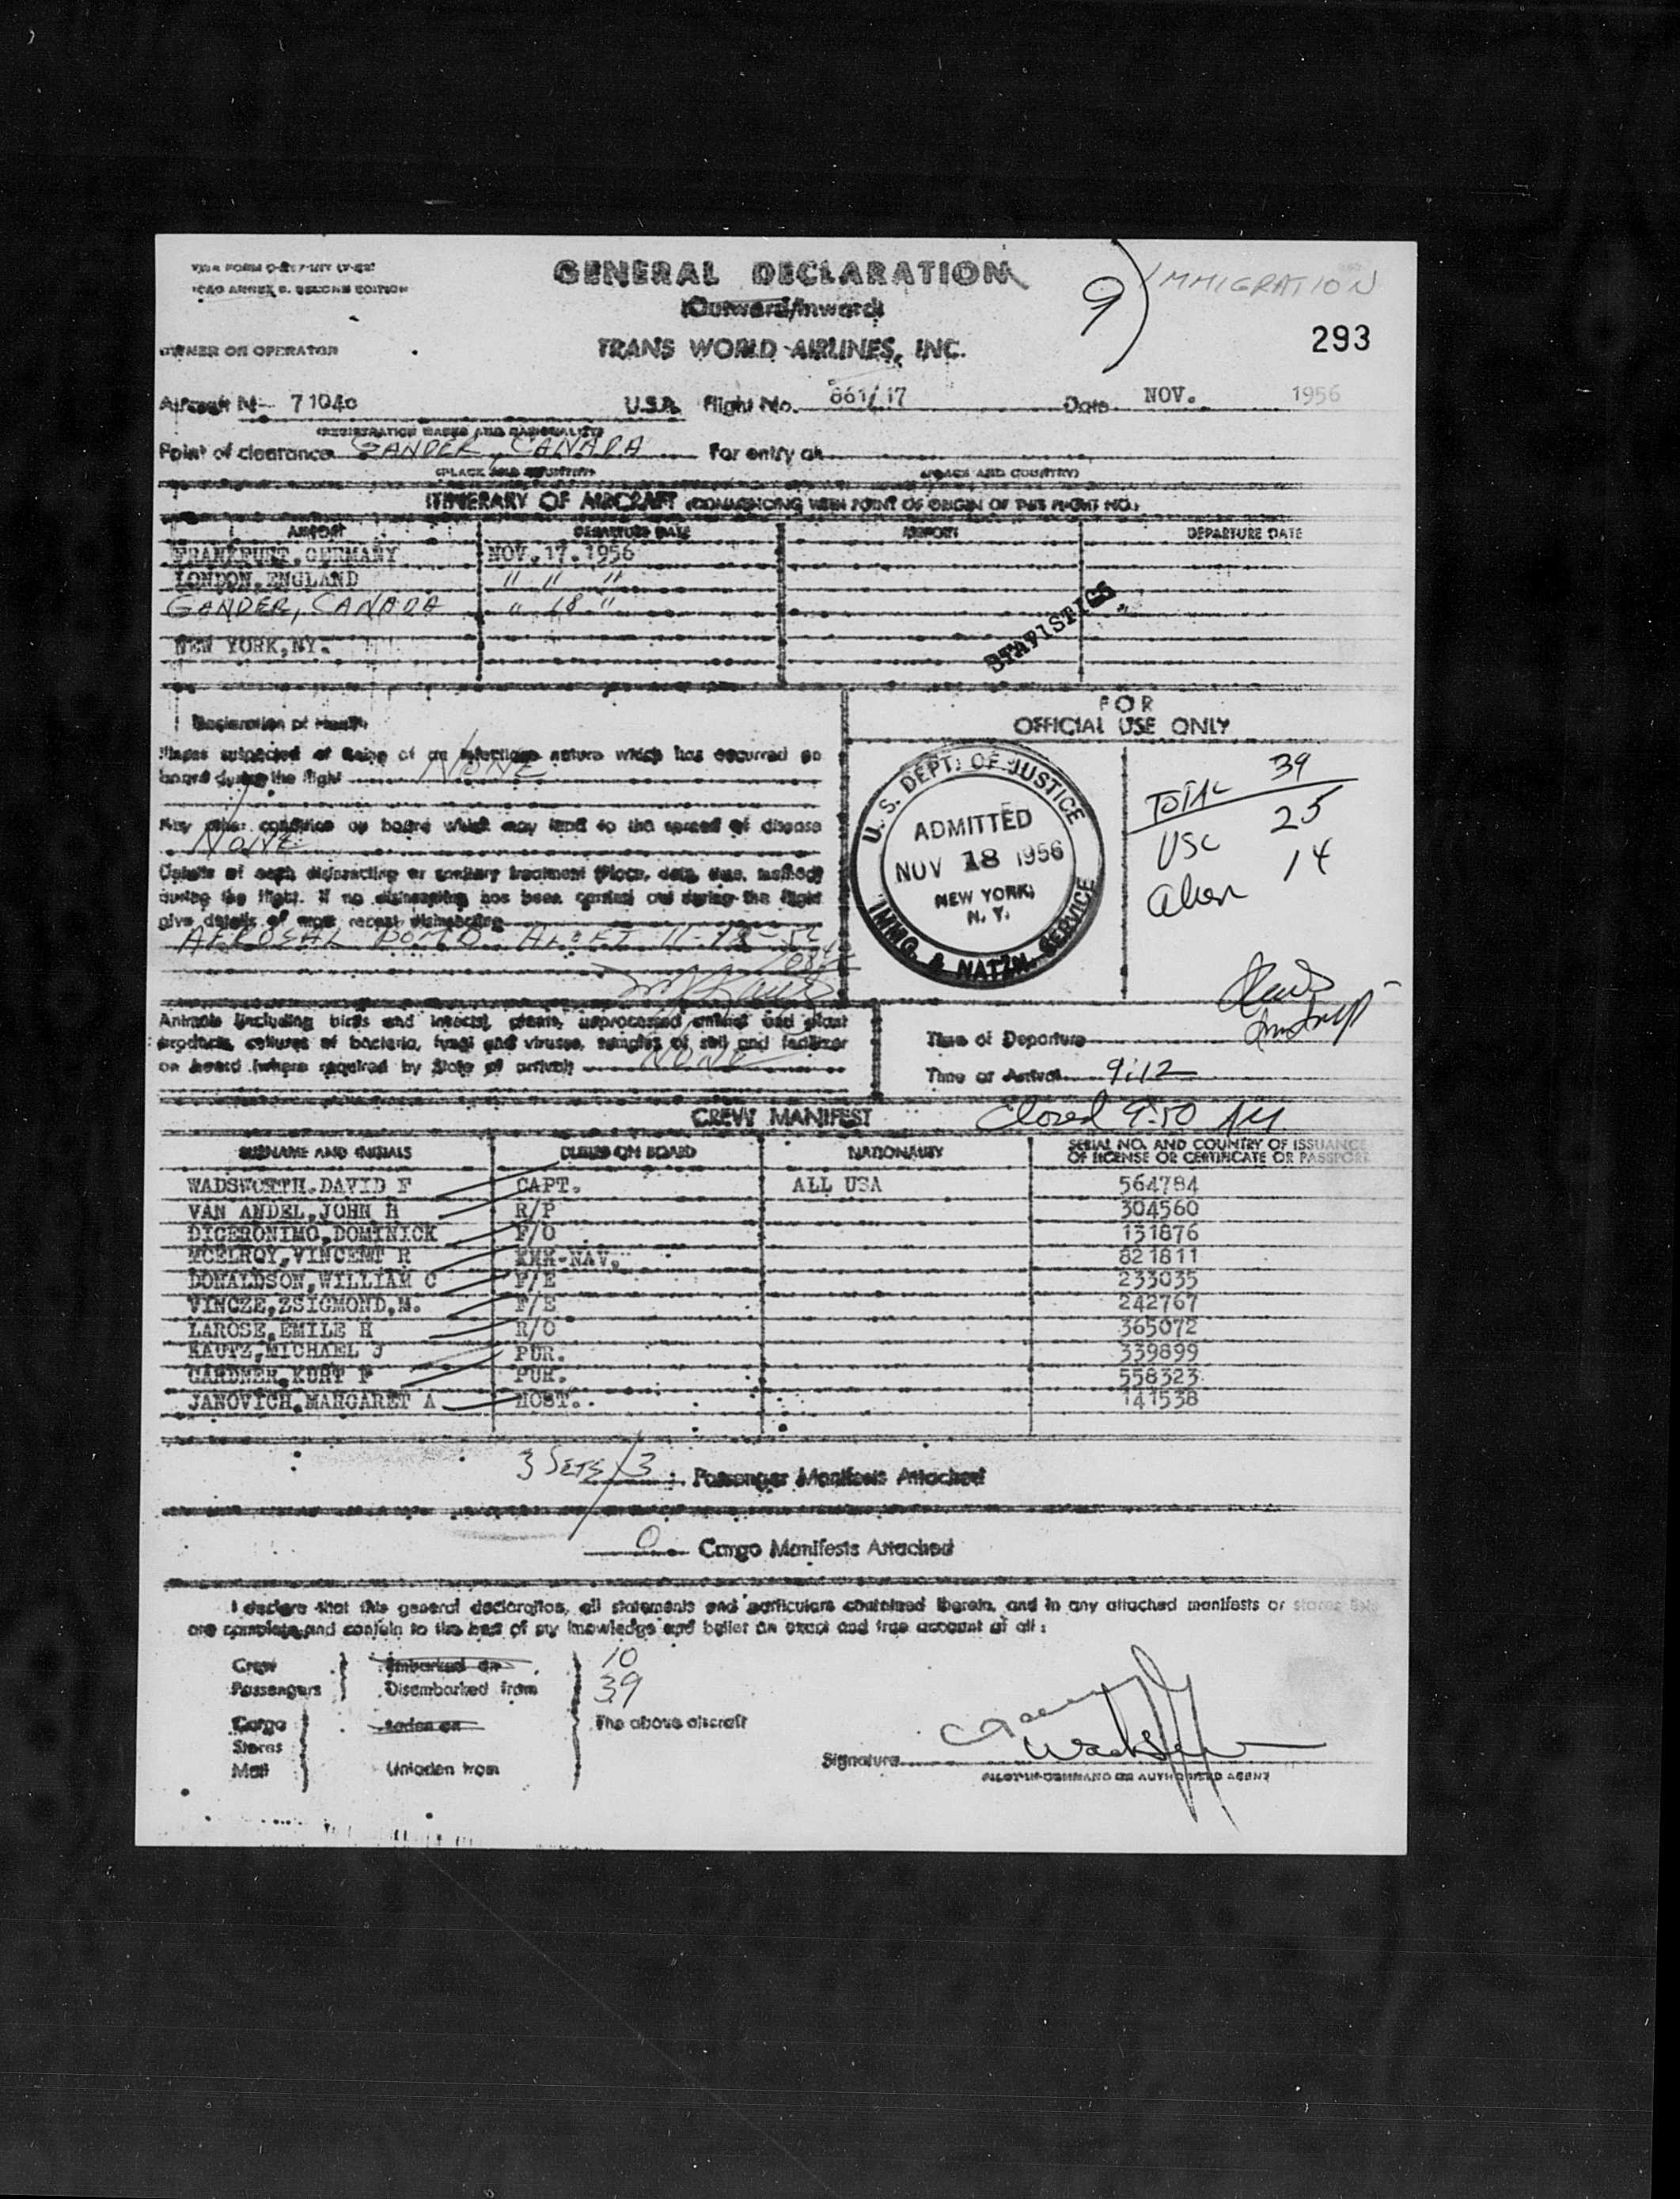 GENERAL DECLARATION
(Outward/Inward)
IMMIGRATION
9)
293
OWNER OR OPERATOR
TRANS WORLD AIRLINES, INC.
Aircraft N- 7104c U.S.A. Flight No. 861/17 Date NOV. 1956
(REGISTRATION MARKS AND NATIONALITY)
Point of clearance GANDER, CANADA For entry at
(PLACE AND COUNTRY) (PLACE AND COUNTRY)
ITINERARY OF AIRCRAFT (COMMENCING WITH POINT OF ORIGIN OF THIS FLIGHT NO.)
AIRPORT DEPARTURE DATE AIRPORT DEPARTURE DATE
FRANKFURT, GERMANY NOV.17.1956
LONDON, ENGLAND " " "
GANDER, CANADA " 18 "
NEW YORK, NY.
STATISTICS
Declaration of Health
Illness suspected of being of an infectious nature which has occurred on
board during the flight NONE
Any other condition on board which may lead to the spread of disease
NONE
Details of each disinsecting or sanitary treatment (Place, date, time, method)
during the flight. If no disinsecting has been carried out during the flight
give details of most recent disinsecting
AEROSAL BOMB ALOFT 11-18-56
FOR
OFFICIAL USE ONLY
U. S. DEPT. OF JUSTICE
ADMITTED
NOV 18 1956
NEW YORK,
N. Y.
IMMG. & NATZN. SERVICE
TOTAL 39
USC 25
Alien 14
Animals (including birds and insects), plants, unprocessed animal and plant
products, cultures of bacteria, fungi and viruses, samples of soil and fertilizer
on board (where required by State of arrival) NONE
Time of Departure
Time of Arrival 9:12
Closed 9:50 AM
CREW MANIFEST
SURNAME AND INITIALS DUTIES ON BOARD NATIONALITY SERIAL NO. AND COUNTRY OF ISSUANCE
OF LICENSE OR CERTIFICATE OR PASSPORT
WADSWORTH.DAVID F CAPT. ALL USA 564784
VAN ANDEL,JOHN H R/P 304560
DIGERONIMO,DOMINICK F/O 131876
MCELROY,VINCENT R NAV. 821811
DONALDSON,WILLIAM C F/E 233035
VINCZE,ZSIGMOND,M. F/E 242767
LAROSE,EMILE H R/O 365072
KAUTZ,MICHAEL J PUR. 339899
GARDNER,KURT F PUR. 558323
JANOVICH,MARGARET A HOST. 141538
3 SETS/3 Passenger Manifests Attached
0 Cargo Manifests Attached
I declare that this general declaration, all statements and particulars contained therein, and in any attached manifests or stores lists
are complete and contain to the best of my knowledge and belief an exact and true account of all:
Crew Embarked on 10
Passengers Disembarked from 39
Cargo Laden on The above aircraft
Stores
Mail Unladen from
Signature
PILOT-IN-COMMAND OR AUTHORIZED AGENT